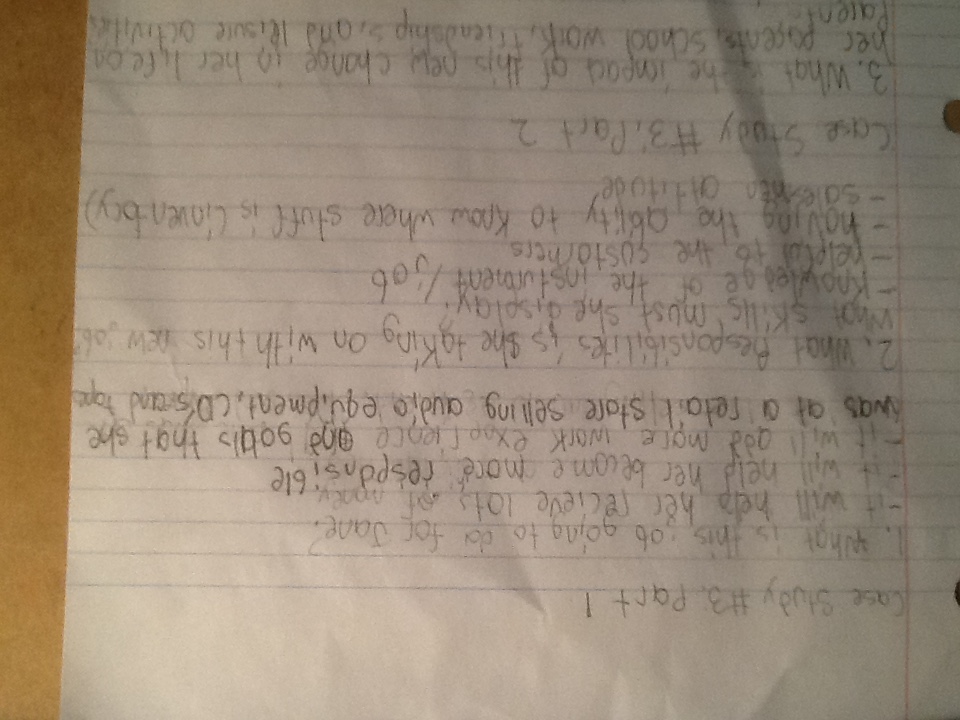 Case Study #3: Part 1
1. What is this job going to do for Jane?
-it will help her recieve lots of money
-it will help her become more responsible
-it will add more work experience and goals that she
was at a retail store selling audio equipment, CD's and tape
2. What Responsibilites is she taking on with this new job?
What skills must she display?
-Knowledge of the insturment/job
-helpful to the customers
-having the ability to know where stuff is (inventory)
- attitude
Case Study #3: Part 2
3. What is the impact of this new change in her life on
her parents, school work, friendships, and leisure activities
Parent